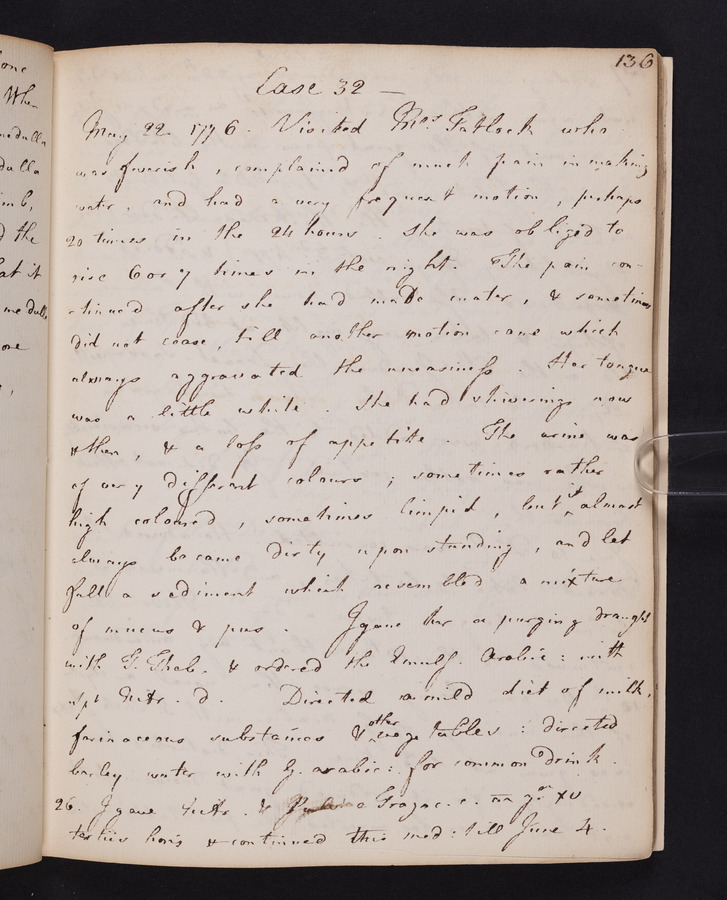 one
Whe-
medulla
dulla
imb,
d the
at it
medulla
one
136
Case 32 —
May 22. 1776. Visited Mrs. Fatlock who
was feverish, complained of much pain in making
water, and had a very frequent motion, perhaps
20 times in the 24 hours. She was obliged to
rise 6 or 7 times in the night. The pain con-
-tinued after she had made water, & sometimes
did not cease, till another motion came which
always aggravated the uneasiness. Her tongue
was a little white. She had shiverings now
& then, & a loss of appetite. The urine was
of very different colours; sometimes rather
high coloured, sometimes limpid, but it almost
always became dirty upon standing, and let
fall a sediment which resembled a mixture
of mucus & pus. I gave her a purging draught
with T. Rhab. & ordered the Emuls. Arabic: with
Spt Nitr. d. Directed a mild diet of milk,
farinaceous substances & other vegetables: directed
barley water with G. arabic: for common drink.
26. I gave Nitr. & e Tragac. c. aa gr xv
tertiis horis & continued this med: till June 4.